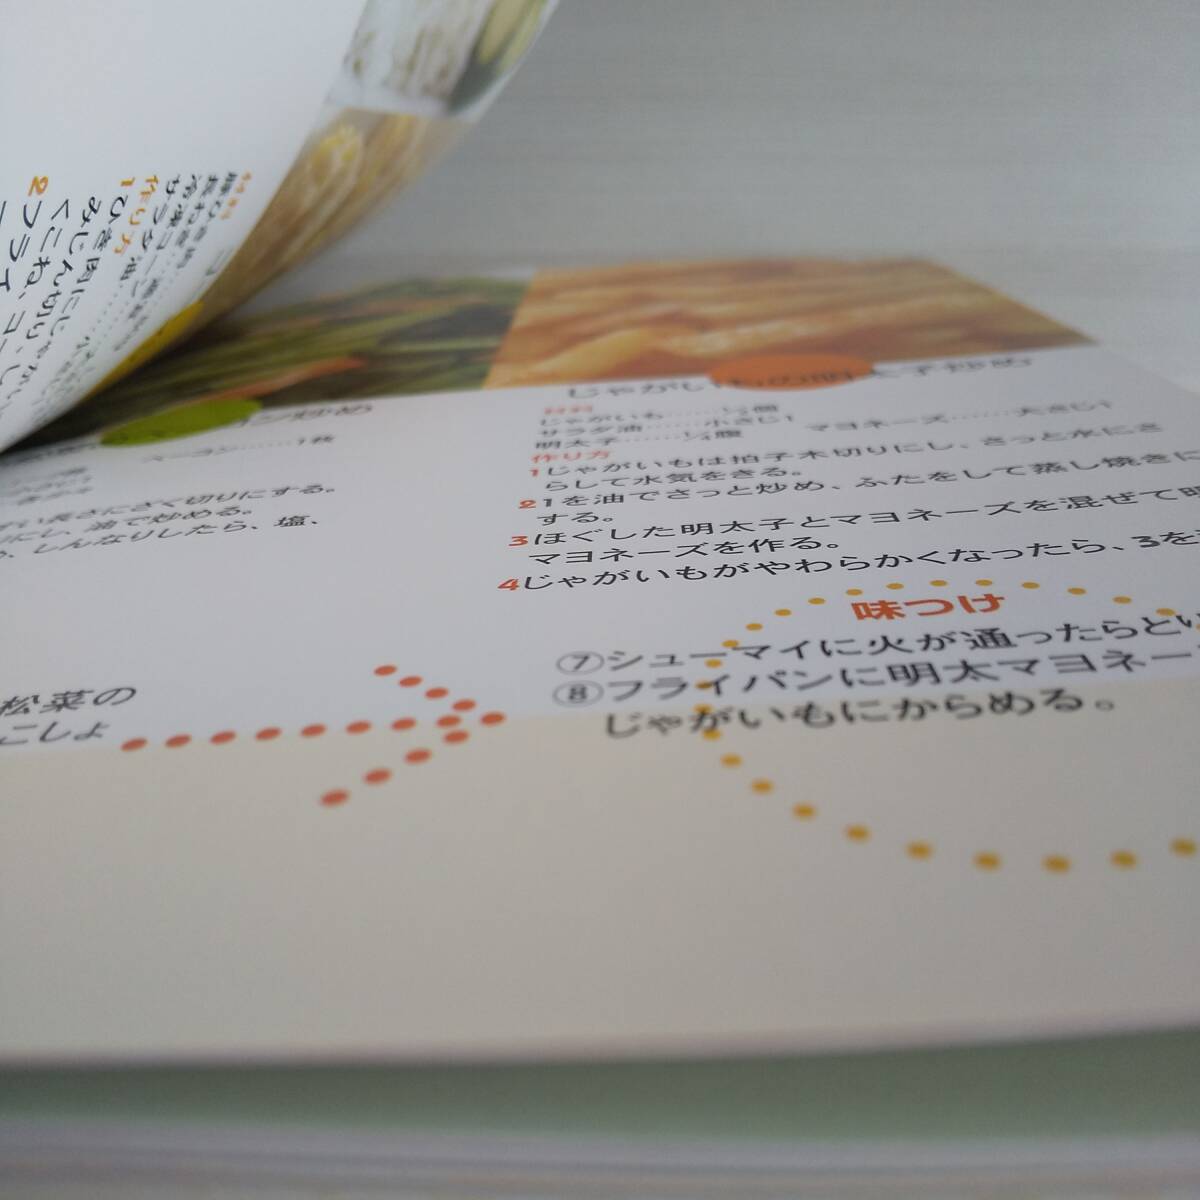 作り方
1ひき肉に
みじん切り、
くこね、コー
2フライ
ン炒め
ベーコン……1枚
すい長さにざく切りにする。
りにし、油で炒める。
、しんなりしたら、塩、
松菜の
こしょ
じゃがいもの明太子炒め
材料
じゃがいも……½個
サラダ油……小さじ1
明太子……¼腹
マヨネーズ……大さじ1
作り方
1じゃがいもは拍子木切りにし、さっと水にさ
らして水気をきる。
21を油でさっと炒め、ふたをして蒸し焼きに
する。
3ほぐした明太子とマヨネーズを混ぜて明
マヨネーズを作る。
4じゃがいもがやわらかくなったら、3を
味つけ
⑦シューマイに火が通ったらとい
⑧フライパンに明太マヨネー
じゃがいもにからめる。